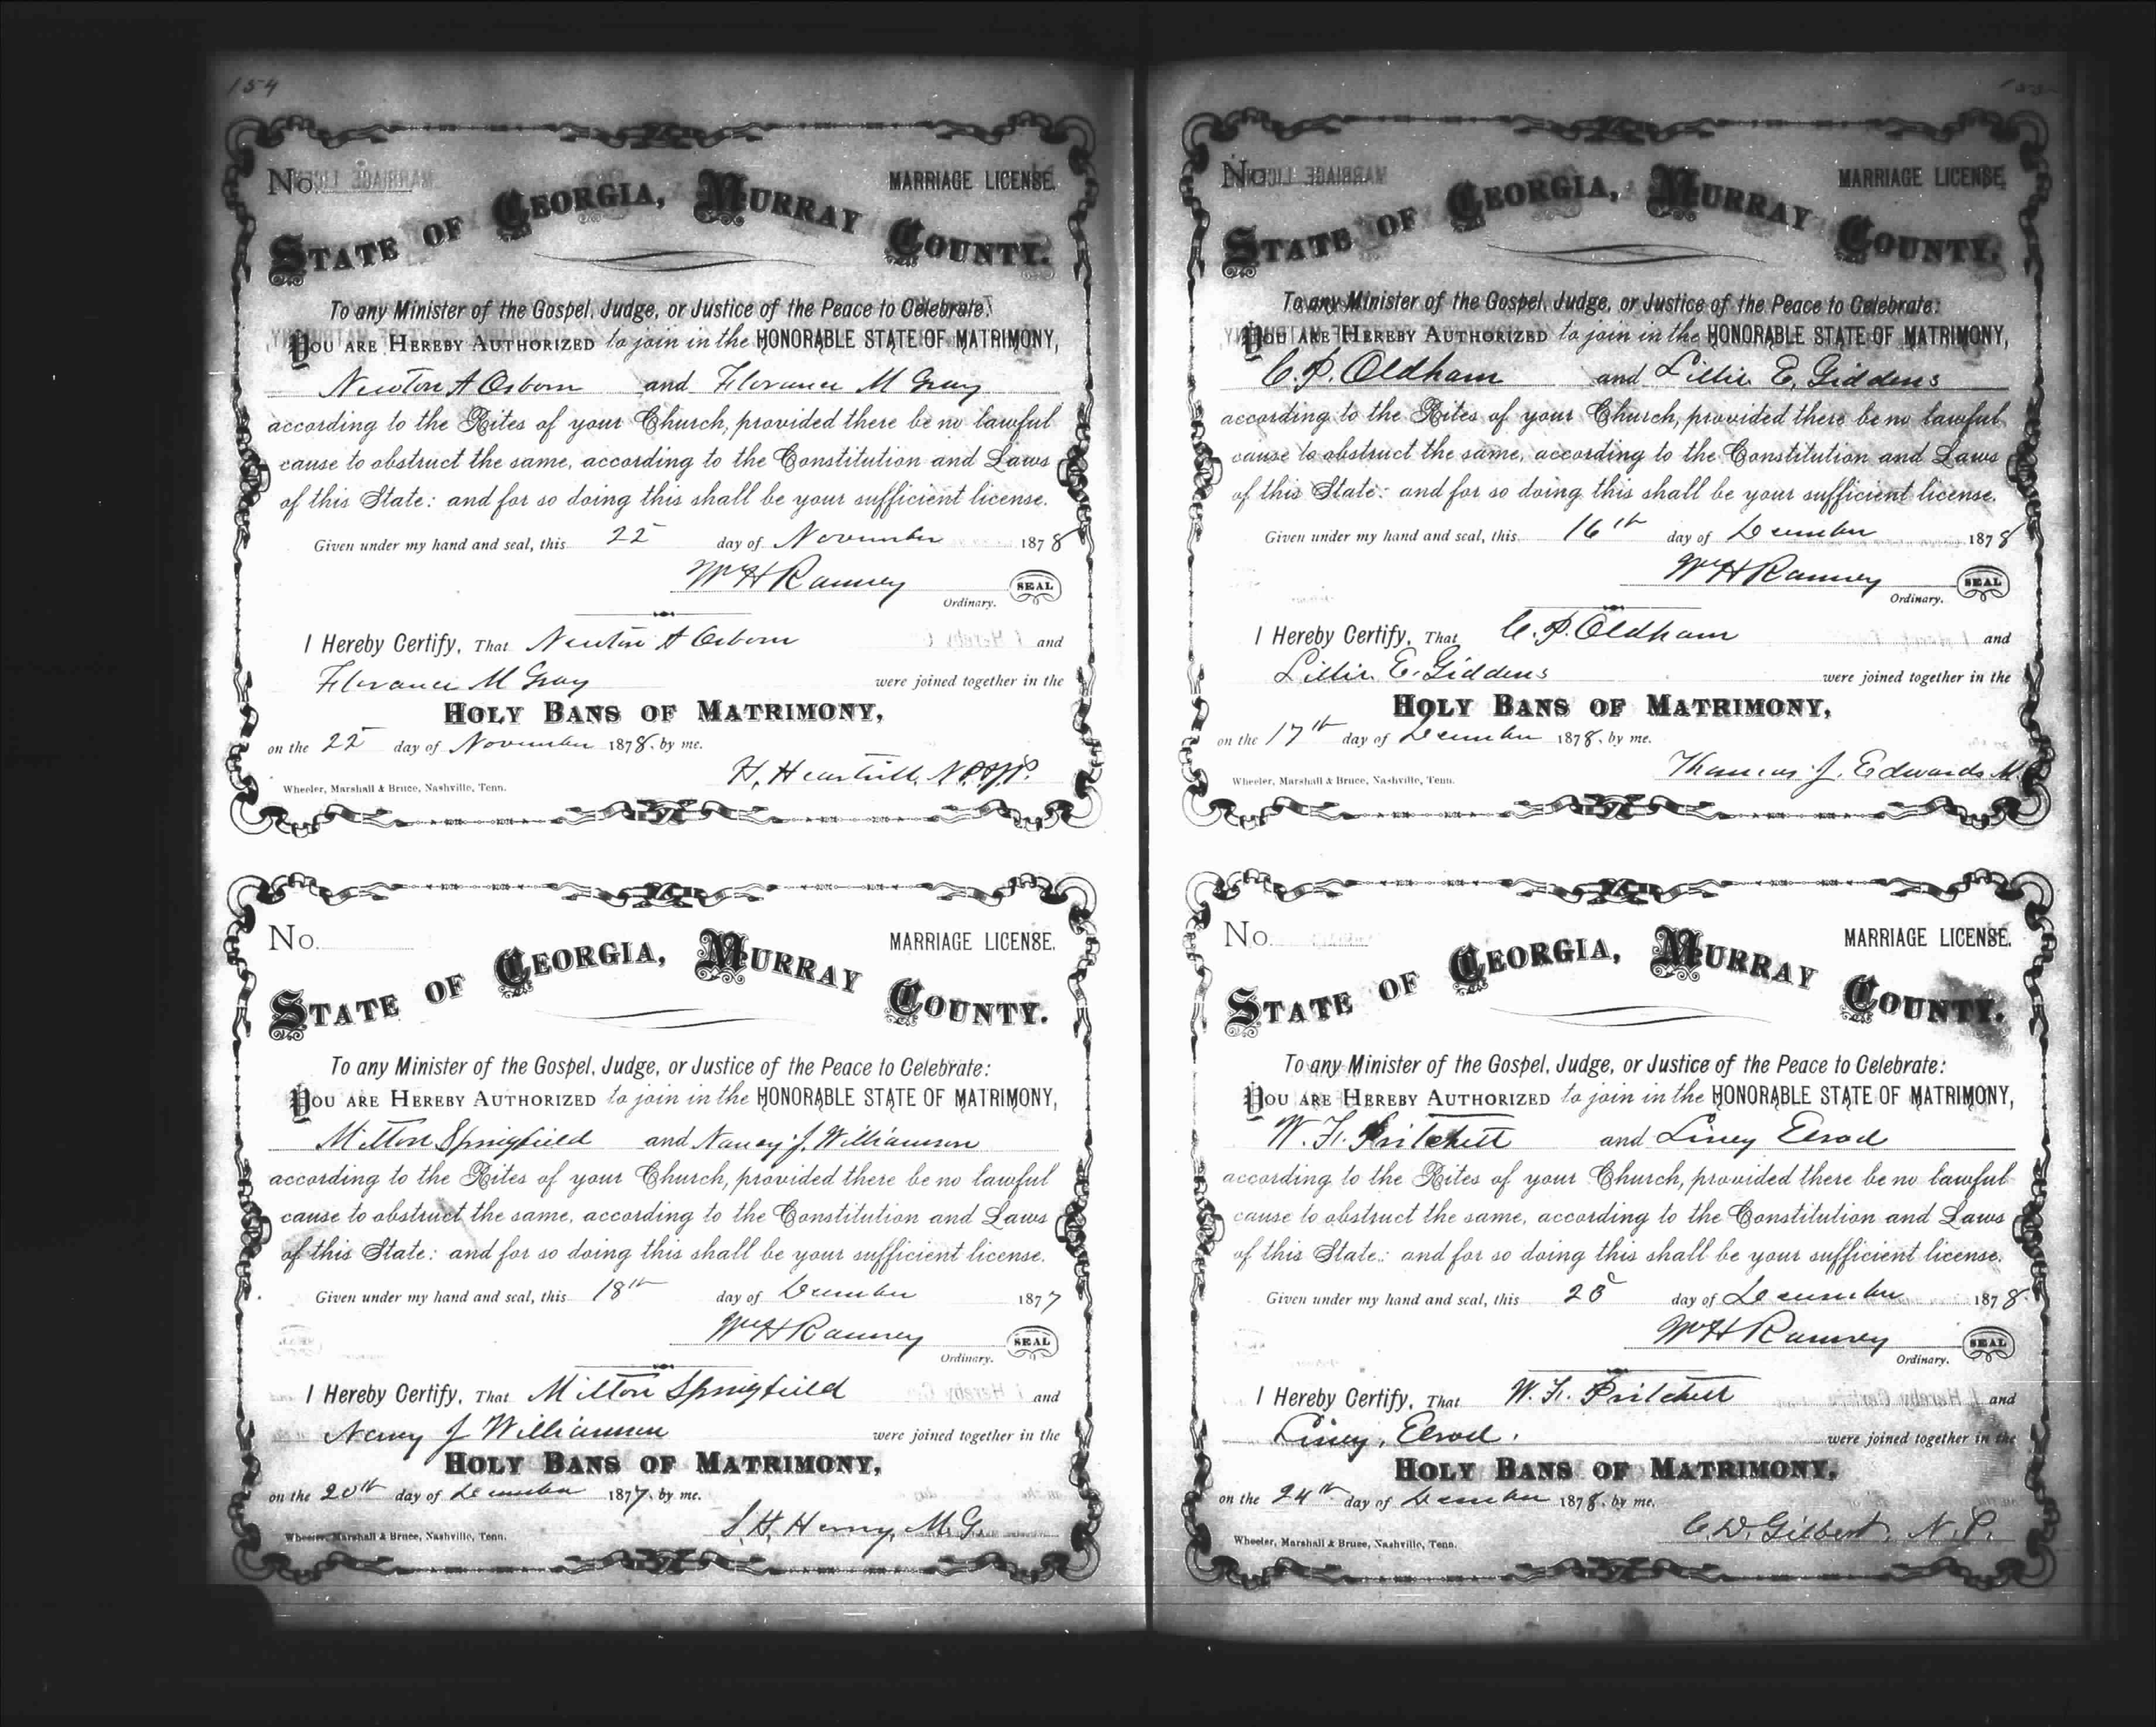 154
No.
MARRIAGE LICENSE.
STATE OF GEORGIA, MURRAY COUNTY.
To any Minister of the Gospel, Judge, or Justice of the Peace to Celebrate:
YOU ARE HEREBY AUTHORIZED to join in the HONORABLE STATE OF MATRIMONY,
Newton A Osborn and Florance M Gray
according to the Rites of your Church, provided there be no lawful
cause to obstruct the same, according to the Constitution and Laws
of this State: and for so doing this shall be your sufficient license.
Given under my hand and seal, this 22 day of November 1878
Wm H Ramsey SEAL
Ordinary.
I Hereby Certify, That Newton A Osborn and
Florance M Gray were joined together in the
HOLY BANS OF MATRIMONY,
on the 22 day of November 1878, by me.
H. Heartsill, N.P. & J.P.
Wheeler, Marshall & Bruce, Nashville, Tenn.
No.
MARRIAGE LICENSE.
STATE OF GEORGIA, MURRAY COUNTY.
To any Minister of the Gospel, Judge, or Justice of the Peace to Celebrate:
YOU ARE HEREBY AUTHORIZED to join in the HONORABLE STATE OF MATRIMONY,
Milton Springfield and Nancy J. Williamson
according to the Rites of your Church, provided there be no lawful
cause to obstruct the same, according to the Constitution and Laws
of this State: and for so doing this shall be your sufficient license.
Given under my hand and seal, this 18th day of December 1877
Wm H Ramsey SEAL
Ordinary.
I Hereby Certify, That Milton Springfield and
Nancy J Williamson were joined together in the
HOLY BANS OF MATRIMONY,
on the 20th day of December 1877, by me.
S. H. Henry, M.G.
Wheeler, Marshall & Bruce, Nashville, Tenn.
155
No.
MARRIAGE LICENSE.
STATE OF GEORGIA, MURRAY COUNTY.
To any Minister of the Gospel, Judge, or Justice of the Peace to Celebrate:
YOU ARE HEREBY AUTHORIZED to join in the HONORABLE STATE OF MATRIMONY,
C. P. Oldham and Lillie E. Giddens
according to the Rites of your Church, provided there be no lawful
cause to obstruct the same, according to the Constitution and Laws
of this State: and for so doing this shall be your sufficient license.
Given under my hand and seal, this 16th day of December 1878
Wm H Ramsey SEAL
Ordinary.
I Hereby Certify, That C. P. Oldham and
Lillie E. Giddens were joined together in the
HOLY BANS OF MATRIMONY,
on the 17th day of December 1878, by me.
Thomas J. Edwards M.
Wheeler, Marshall & Bruce, Nashville, Tenn.
No.
MARRIAGE LICENSE.
STATE OF GEORGIA, MURRAY COUNTY.
To any Minister of the Gospel, Judge, or Justice of the Peace to Celebrate:
YOU ARE HEREBY AUTHORIZED to join in the HONORABLE STATE OF MATRIMONY,
W. F. Pritchett and Liney Elrod
according to the Rites of your Church, provided there be no lawful
cause to obstruct the same, according to the Constitution and Laws
of this State: and for so doing this shall be your sufficient license.
Given under my hand and seal, this day of December 1878
Wm H Ramsey SEAL
Ordinary.
I Hereby Certify, That W. F. Pritchett and
Liney, Elrod. were joined together in the
HOLY BANS OF MATRIMONY,
on the 24th day of December 1878, by me.
C. D. Gilbert, N.P.
Wheeler, Marshall & Bruce, Nashville, Tenn.